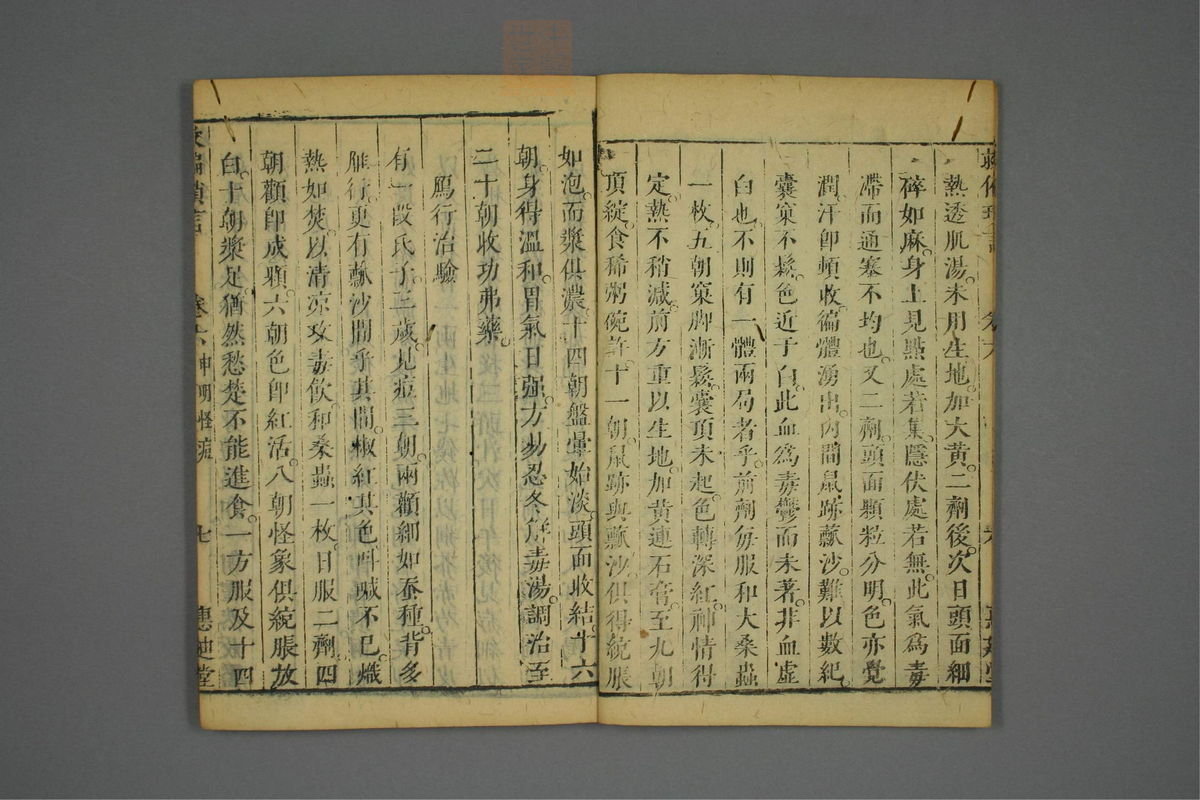 熱透肌湯。未用生地。加大黃。二劑後。次日頭面細
碎如麻。身上見點處若集。隱伏處若無。此氣爲毒
滯而通塞不均也。又二劑。頭面顆粒分明。色亦覺
潤。汗即頓收。徧體湧出。內間鼠跡蘇沙。難以數紀。
囊窠不鬆。色近于白。此血爲毒鬱而未著。非血虛
白也。不則有一體兩局者乎。前劑每服和大桑蟲
一枚。五朝窠脚漸鬆。囊頂未起。色轉深紅。神情得
定。熱不稍減。前方重以生地。加黃連石膏。至九朝
頂綻。食稀粥碗許。十一朝。鼠跡與蘇沙。俱得統脹
如泡。而漿俱濃。十四朝盤暈始淡。頭面收結。十六
朝。身得溫和。胃氣日强。方易忍冬解毒湯。調治至
二十朝收功弗藥。
鴈行治驗
有一段氏子。三歲。見痘三朝。兩顴細如蚕種。背多
鴈行。更有蘇沙間乎其間。椒紅其色。叫喊不已。熾
熱如焚。以清凉攻毒飲。和桑蟲一枚。日服二劑。四
朝顴即成顆。六朝色即紅活。八朝怪象俱統脹放
白。十朝漿足。猶然愁楚不能進食。一方服及十四
卷六 申明怪痘
七